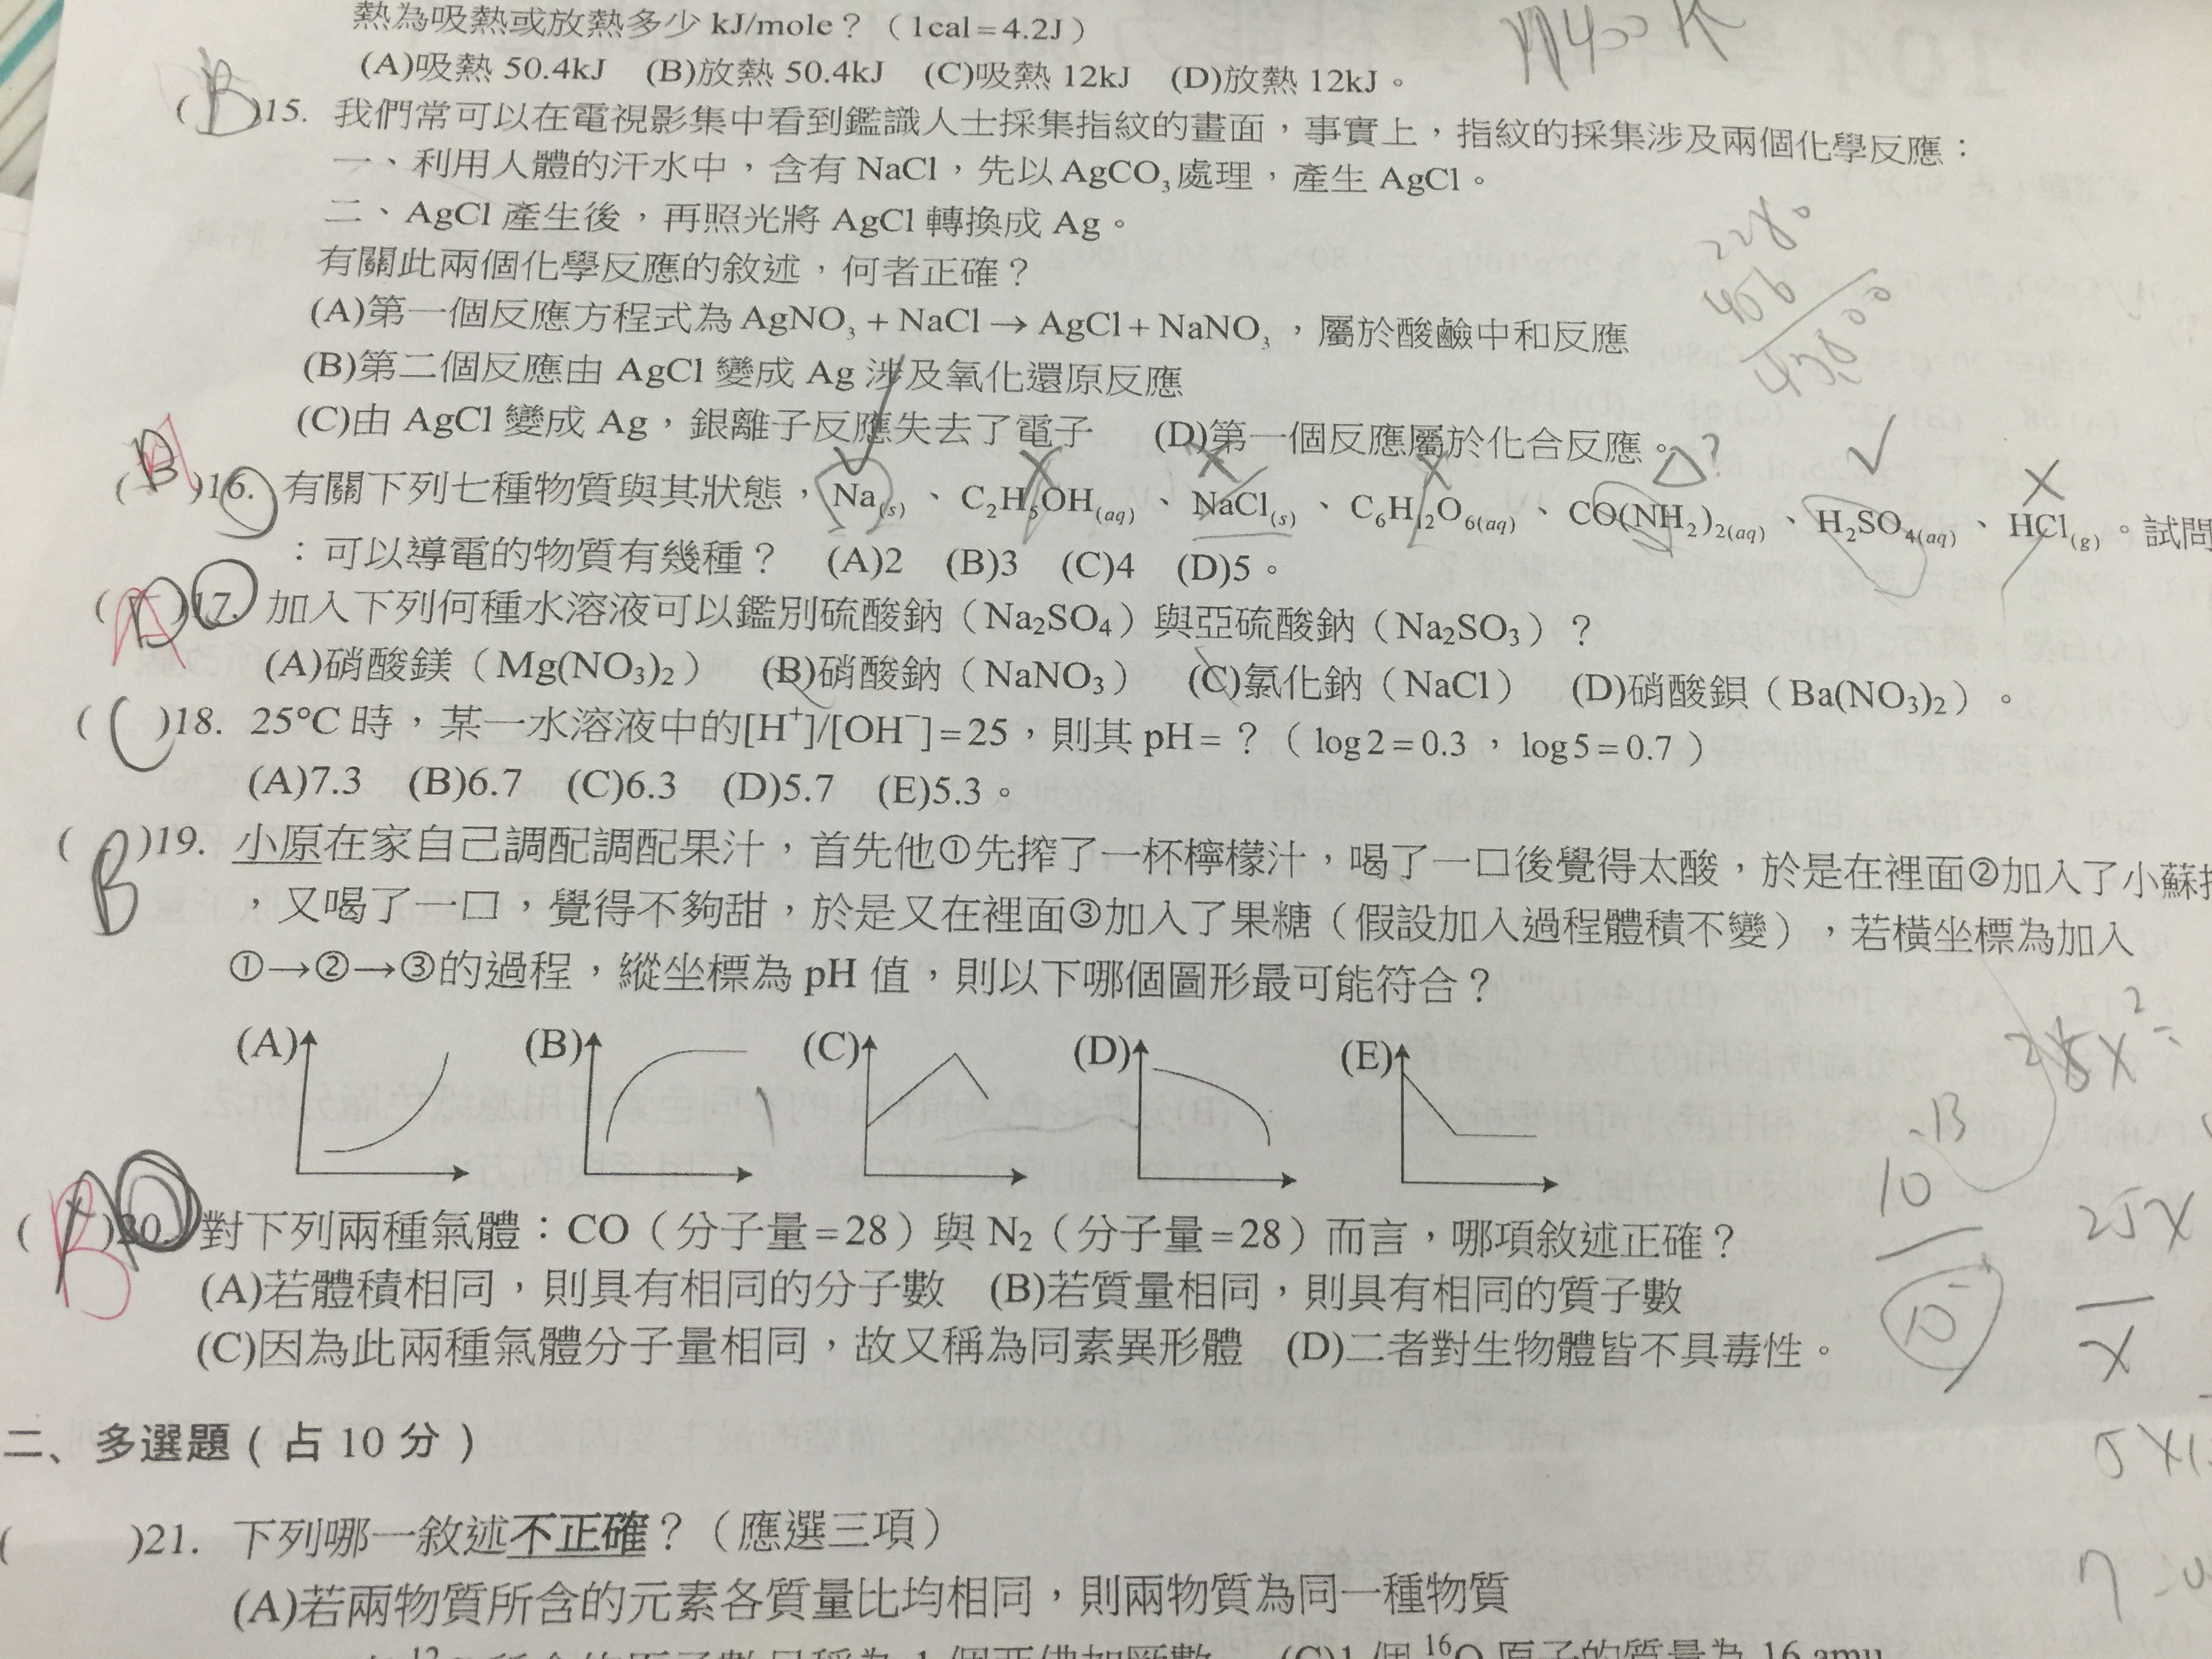 熱為吸熱或放熱多少 kJ/mole？（1cal=4.2J）
(A)吸熱 50.4kJ (B)放熱 50.4kJ (C)吸熱 12kJ (D)放熱 12kJ。
(B)15. 我們常可以在電視影集中看到鑑識人士採集指紋的畫面，事實上，指紋的採集涉及兩個化學反應：
一、利用人體的汗水中，含有 NaCl，先以 AgCO₃ 處理，產生 AgCl。
二、AgCl 產生後，再照光將 AgCl 轉換成 Ag。
有關此兩個化學反應的敘述，何者正確？
(A)第一個反應方程式為 AgNO₃ + NaCl → AgCl + NaNO₃，屬於酸鹼中和反應
(B)第二個反應由 AgCl 變成 Ag 涉及氧化還原反應
(C)由 AgCl 變成 Ag，銀離子反應失去了電子 (D)第一個反應屬於化合反應。
( )16. 有關下列七種物質與其狀態，Na(s)、C₂H₅OH(aq)、NaCl(s)、C₆H₁₂O₆(aq)、CO(NH₂)₂(aq)、H₂SO₄(aq)、HCl(g)。試問
：可以導電的物質有幾種？ (A)2 (B)3 (C)4 (D)5。
( )17. 加入下列何種水溶液可以鑑別硫酸鈉（Na₂SO₄）與亞硫酸鈉（Na₂SO₃）？
(A)硝酸鎂（Mg(NO₃)₂） (B)硝酸鈉（NaNO₃） (C)氯化鈉（NaCl） (D)硝酸鋇（Ba(NO₃)₂）。
(C)18. 25°C 時，某一水溶液中的[H⁺]/[OH⁻]=25，則其 pH=？（log2=0.3，log5=0.7）
(A)7.3 (B)6.7 (C)6.3 (D)5.7 (E)5.3。
(B)19. 小原在家自己調配調配果汁，首先他①先搾了一杯檸檬汁，喝了一口後覺得太酸，於是在裡面②加入了小蘇打
，又喝了一口，覺得不夠甜，於是又在裡面③加入了果糖（假設加入過程體積不變），若橫坐標為加入
①→②→③的過程，縱坐標為 pH 值，則以下哪個圖形最可能符合？
(A) (B) (C) (D) (E)
( )20. 對下列兩種氣體：CO（分子量=28）與 N₂（分子量=28）而言，哪項敘述正確？
(A)若體積相同，則具有相同的分子數 (B)若質量相同，則具有相同的質子數
(C)因為此兩種氣體分子量相同，故又稱為同素異形體 (D)二者對生物體皆不具毒性。
二、多選題（占 10 分）
( )21. 下列哪一敘述不正確？（應選三項）
(A)若兩物質所含的元素各質量比均相同，則兩物質為同一種物質
(C)1 個 ¹⁶O 原子的質量為 16 amu